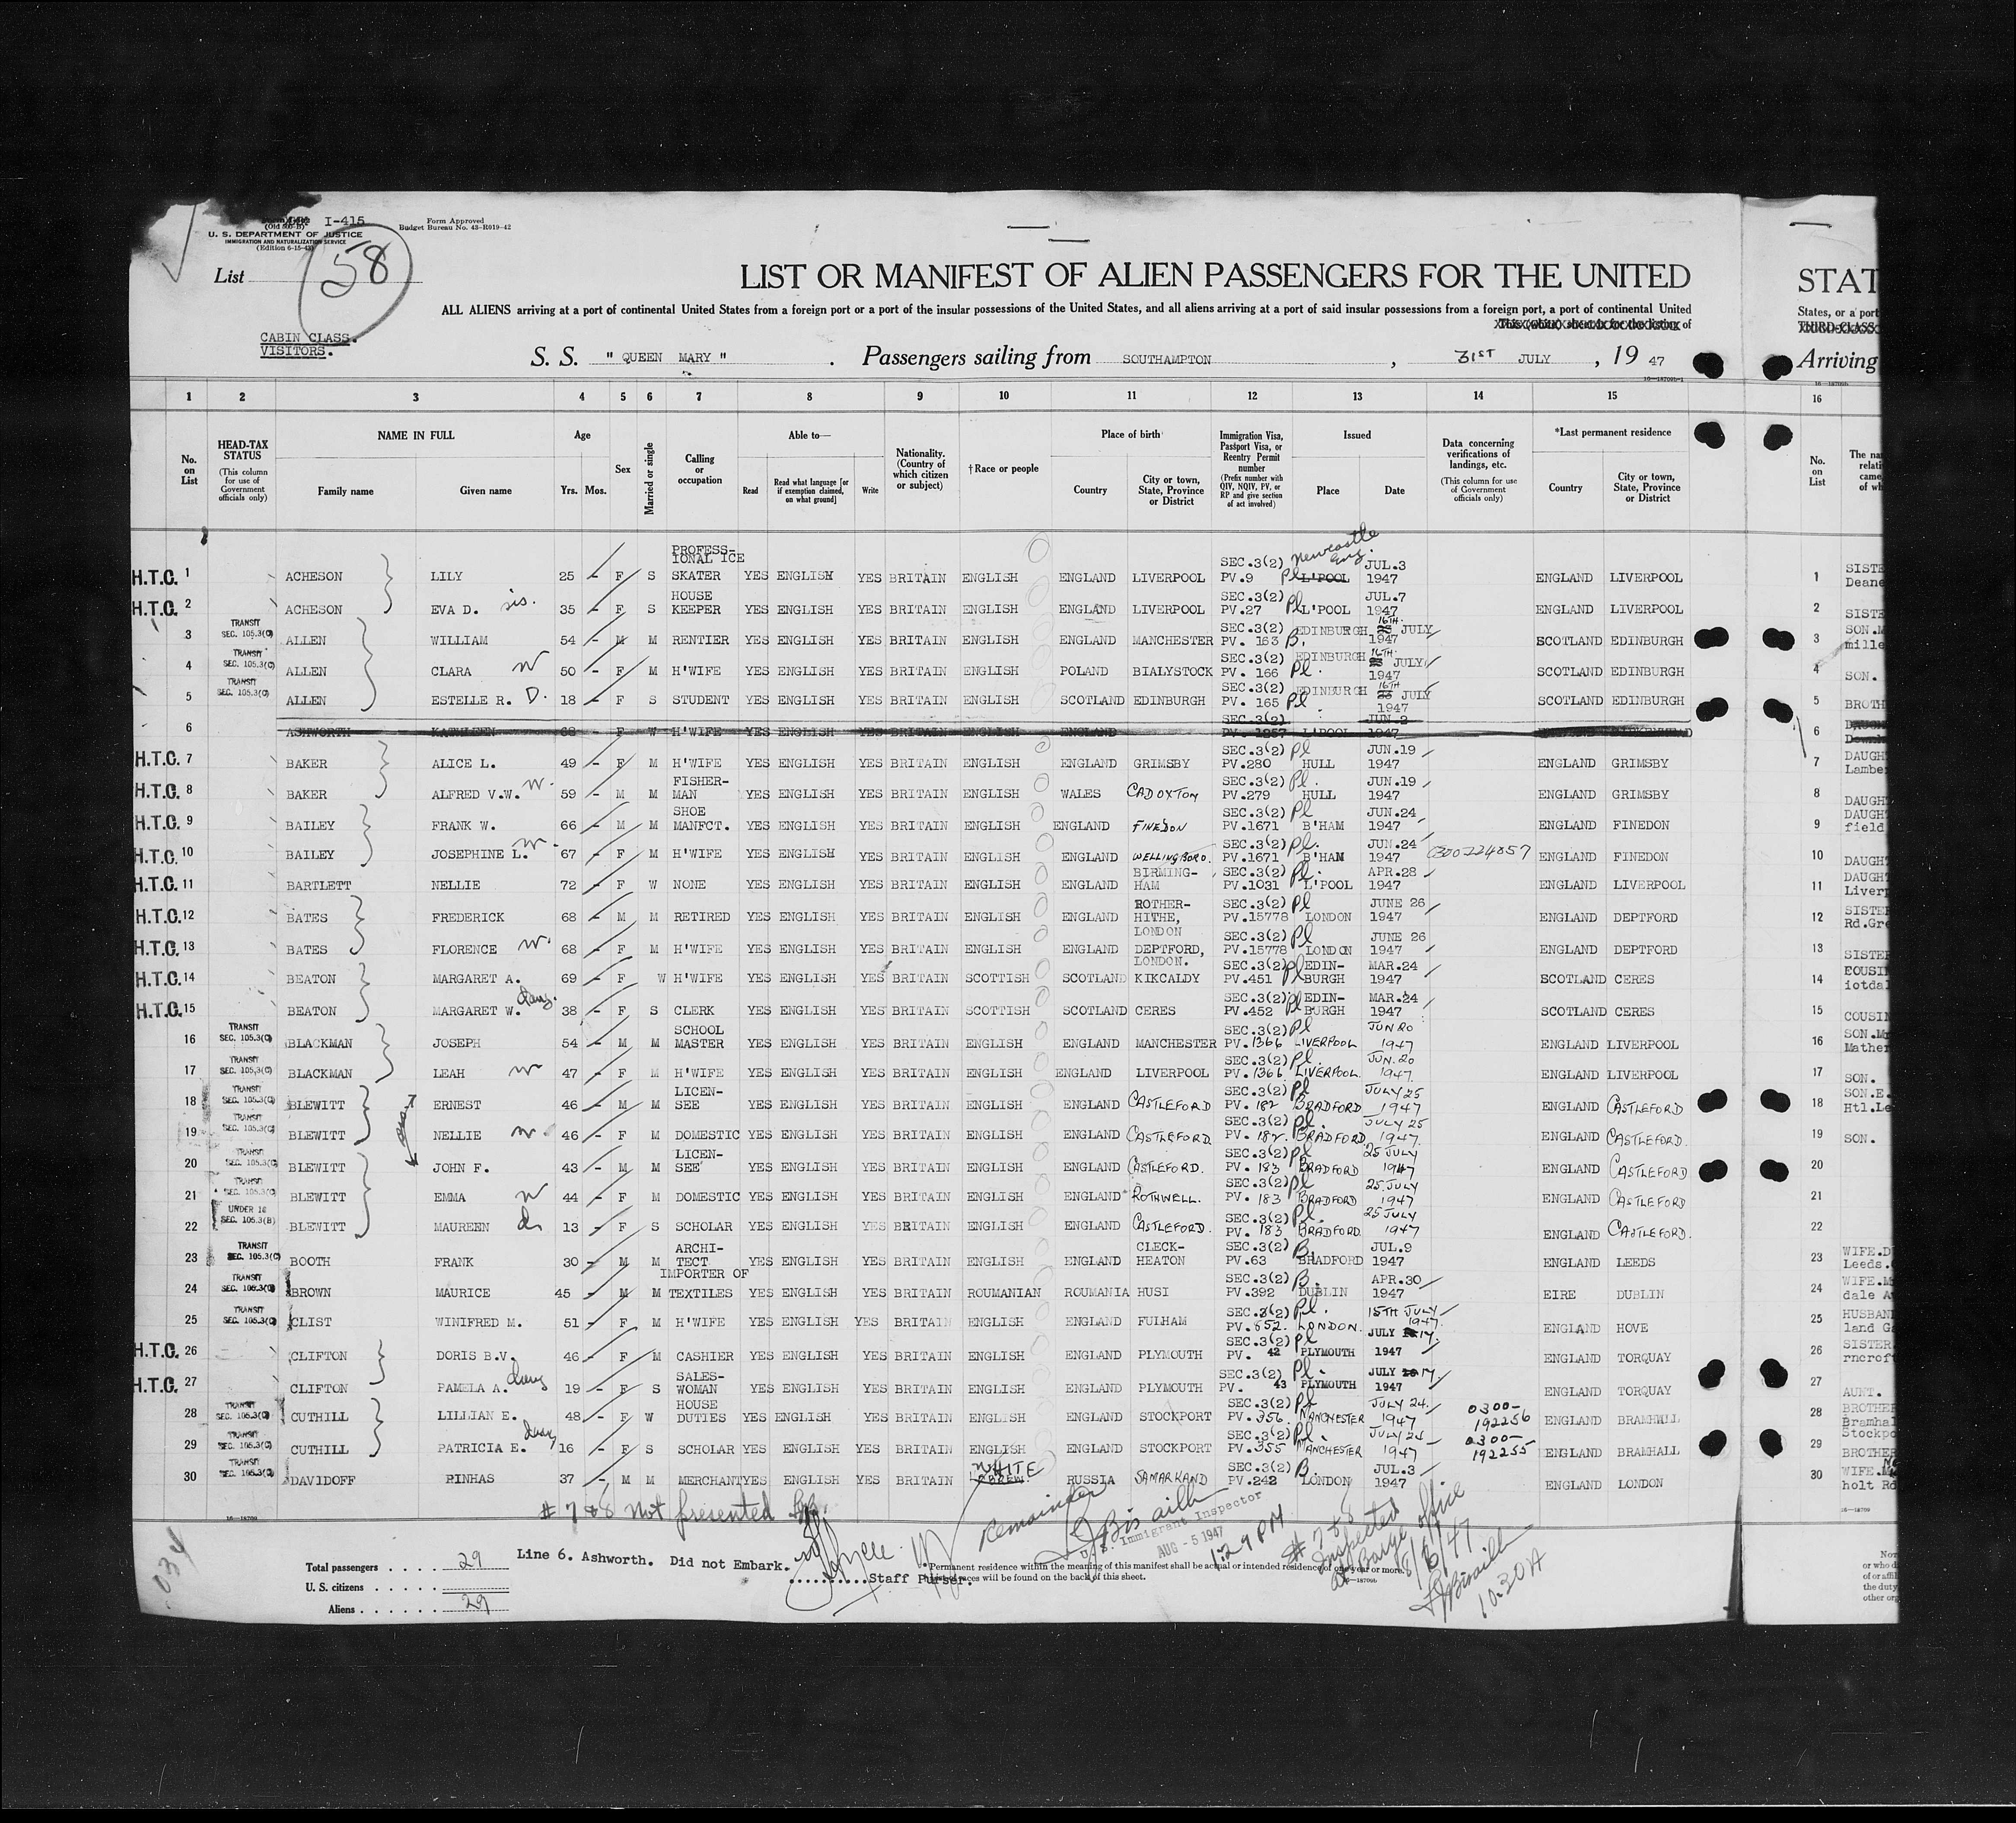 I-415
Form Approved
Budget Bureau No. 43-R019-42
U. S. DEPARTMENT OF JUSTICE
IMMIGRATION AND NATURALIZATION SERVICE
(Edition 6-15-43)
List 58
LIST OR MANIFEST OF ALIEN PASSENGERS FOR THE UNITED
STAT
ALL ALIENS arriving at a port of continental United States from a foreign port or a port of the insular possessions of the United States, and all aliens arriving at a port of said insular possessions from a foreign port, a port of continental United
States, or a port
CABIN CLASS.
VISITORS.
S. S. " QUEEN MARY " . Passengers sailing from SOUTHAMPTON , 31ST JULY , 19 47
Arriving
1 2 3 4 5 6 7 8 9 10 11 12 13 14 15 16
No. on List
HEAD-TAX STATUS (This column for use of Government officials only)
NAME IN FULL Family name Given name
Age Yrs. Mos.
Sex
Married or single
Calling or occupation
Able to— Read Read what language [or if exemption claimed, on what ground] Write
Nationality. (Country of which citizen or subject)
†Race or people
Place of birth Country City or town, State, Province or District
Immigration Visa, Passport Visa, or Reentry Permit number (Prefix number with QIV, NQIV, PV, or RP and give section of act involved)
Issued Place Date
Data concerning verifications of landings, etc. (This column for use of Government officials only)
*Last permanent residence Country City or town, State, Province or District
No. on List
H.T.C. 1 ACHESON LILY 25 - F S PROFESS-IONAL ICE SKATER YES ENGLISH YES BRITAIN ENGLISH ENGLAND LIVERPOOL SEC.3(2) PV.9 Pl L'POOL Newcastle Eng. JUL.3 1947 ENGLAND LIVERPOOL 1 SISTE Deane
H.T.C. 2 ACHESON EVA D. sis. 35 - F S HOUSE KEEPER YES ENGLISH YES BRITAIN ENGLISH ENGLAND LIVERPOOL SEC.3(2) PV.27 Pl L'POOL JUL.7 1947 ENGLAND LIVERPOOL 2 SISTE
3 TRANSIT SEC. 105.3(C) ALLEN WILLIAM 54 - M M RENTIER YES ENGLISH YES BRITAIN ENGLISH ENGLAND MANCHESTER SEC.3(2) PV. 163 B. EDINBURGH 16TH JULY 1947 SCOTLAND EDINBURGH 3 SON.M mille
4 TRANSIT SEC. 105.3(C) ALLEN CLARA W 50 - F M H'WIFE YES ENGLISH YES BRITAIN ENGLISH POLAND BIALYSTOCK SEC.3(2) PV. 166 Pl. EDINBURGH 16TH JULY 1947 SCOTLAND EDINBURGH 4 SON.
5 TRANSIT SEC. 105.3(C) ALLEN ESTELLE R. D. 18 - F S STUDENT YES ENGLISH YES BRITAIN ENGLISH SCOTLAND EDINBURGH SEC.3(2) PV. 165 Pl. EDINBURGH 16TH JULY 1947 SCOTLAND EDINBURGH 5 BROTH
6 ASHWORTH KATHLEEN 68 - F W H'WIFE YES ENGLISH YES BRITAIN ENGLISH ENGLAND SEC.3(2) PV. 1857 L'POOL JUN.2 1947 BIRKENHEAD 6
H.T.C. 7 BAKER ALICE L. 49 - F M H'WIFE YES ENGLISH YES BRITAIN ENGLISH ENGLAND GRIMSBY SEC.3(2) PV.280 Pl HULL JUN.19 1947 ENGLAND GRIMSBY 7 DAUGH Lambe
H.T.C. 8 BAKER ALFRED V.W. W. 59 - M M FISHER-MAN YES ENGLISH YES BRITAIN ENGLISH WALES CADOXTON SEC.3(2) PV.279 Pl. HULL JUN.19 1947 ENGLAND GRIMSBY 8 DAUGH
H.T.C. 9 BAILEY FRANK W. 66 - M M SHOE MANFCT. YES ENGLISH YES BRITAIN ENGLISH ENGLAND FINEDON SEC.3(2) PV.1671 Pl B'HAM JUN.24 1947 ENGLAND FINEDON 9 DAUGH field
H.T.C. 10 BAILEY JOSEPHINE L. W. 67 - F M H'WIFE YES ENGLISH YES BRITAIN ENGLISH ENGLAND WELLINGBORO. SEC.3(2) PV.1671 Pl. B'HAM JUN.24 1947 0300224857 ENGLAND FINEDON 10 DAUGH
H.T.C. 11 BARTLETT NELLIE 72 - F W NONE YES ENGLISH YES BRITAIN ENGLISH ENGLAND BIRMING-HAM SEC.3(2) PV.1031 Pl. L'POOL APR.28 1947 ENGLAND LIVERPOOL 11 DAUGH Liverp
H.T.C. 12 BATES FREDERICK 68 - M M RETIRED YES ENGLISH YES BRITAIN ENGLISH ENGLAND ROTHER-HITHE, LONDON SEC.3(2) PV.15778 Pl LONDON JUNE 26 1947 ENGLAND DEPTFORD 12 SISTE Rd.Gre
H.T.C. 13 BATES FLORENCE W. 68 - F M H'WIFE YES ENGLISH YES BRITAIN ENGLISH ENGLAND DEPTFORD, LONDON. SEC.3(2) PV.15778 Pl LONDON JUNE 26 1947 ENGLAND DEPTFORD 13 SISTE
H.T.C. 14 BEATON MARGARET A. 69 - F W H'WIFE YES ENGLISH YES BRITAIN SCOTTISH SCOTLAND KIKCALDY SEC.3(2) PV.451 Pl EDIN-BURGH MAR.24 1947 SCOTLAND CERES 14 COUSI iotda
H.T.C. 15 BEATON MARGARET W. daug. 38 - F S CLERK YES ENGLISH YES BRITAIN SCOTTISH SCOTLAND CERES SEC.3(2) PV.452 Pl EDIN-BURGH MAR.24 1947 SCOTLAND CERES 15 COUSIN
16 TRANSIT SEC. 105.3(C) BLACKMAN JOSEPH 54 - M M SCHOOL MASTER YES ENGLISH YES BRITAIN ENGLISH ENGLAND MANCHESTER SEC.3(2) PV.1366 Pl LIVERPOOL JUN 20 1947 ENGLAND LIVERPOOL 16 SON.Mr Mather
17 TRANSIT SEC. 105.3(C) BLACKMAN LEAH W 47 - F M H'WIFE YES ENGLISH YES BRITAIN ENGLISH ENGLAND LIVERPOOL SEC.3(2) PV.1366 Pl. LIVERPOOL. JUN.20 1947. ENGLAND LIVERPOOL 17 SON.
18 TRANSIT SEC. 105.3(C) BLEWITT ERNEST 46 - M M LICEN-SEE YES ENGLISH YES BRITAIN ENGLISH ENGLAND CASTLEFORD SEC.3(2) PV. 182 Pl BRADFORD JULY 25 1947 ENGLAND CASTLEFORD 18 SON.E. Htl.Le
19 TRANSIT SEC. 105.3(C) BLEWITT NELLIE W. 46 - F M DOMESTIC YES ENGLISH YES BRITAIN ENGLISH ENGLAND CASTLEFORD. SEC.3(2) PV. 182. Pl. BRADFORD JULY 25 1947. ENGLAND CASTLEFORD. 19 SON.
20 TRANSIT SEC. 105.3(C) BLEWITT JOHN F. 43 - M M LICEN-SEE YES ENGLISH YES BRITAIN ENGLISH ENGLAND CASTLEFORD. SEC.3(2) PV. 183 Pl BRADFORD 25 JULY 1947 ENGLAND CASTLEFORD 20
21 TRANSIT SEC. 105.3(C) BLEWITT EMMA W 44 - F M DOMESTIC YES ENGLISH YES BRITAIN ENGLISH ENGLAND ROTHWELL. SEC.3(2) PV. 183 Pl BRADFORD 25 JULY 1947 ENGLAND CASTLEFORD 21
22 UNDER 16 SEC. 105.3(B) BLEWITT MAUREEN 13 - F S SCHOLAR YES ENGLISH YES BRITAIN ENGLISH ENGLAND CASTLEFORD. SEC.3(2) PV. 183 Pl. BRADFORD. 25 JULY 1947 ENGLAND CASTLEFORD. 22
23 TRANSIT SEC. 105.3(C) BOOTH FRANK 30 - M M ARCHI-TECT YES ENGLISH YES BRITAIN ENGLISH ENGLAND CLECK-HEATON SEC.3(2) PV.63 B. BRADFORD JUL.9 1947 ENGLAND LEEDS 23 WIFE.D Leeds.
24 TRANSIT SEC. 105.3(C) BROWN MAURICE 45 - M M IMPORTER OF TEXTILES YES ENGLISH YES BRITAIN ROUMANIAN ROUMANIA HUSI SEC.3(2) PV.392 B. DUBLIN APR.30 1947 EIRE DUBLIN 24 WIFE.M dale A
25 TRANSIT SEC. 105.3(C) CLIST WINIFRED M. 51 - F M H'WIFE YES ENGLISH YES BRITAIN ENGLISH ENGLAND FULHAM SEC.3(2) PV.852. Pl. LONDON. 15TH JULY 1947. ENGLAND HOVE 25 HUSBAN land G
H.T.C. 26 CLIFTON DORIS B.V. 46 - F M CASHIER YES ENGLISH YES BRITAIN ENGLISH ENGLAND PLYMOUTH SEC.3(2) PV. 42 Pl PLYMOUTH JULY 17. 1947 ENGLAND TORQUAY 26 SISTER rncroft
H.T.C. 27 CLIFTON PAMELA A. daug 19 - F S SALES-WOMAN YES ENGLISH YES BRITAIN ENGLISH ENGLAND PLYMOUTH SEC.3(2) PV. 43 Pl. PLYMOUTH JULY 17 1947 ENGLAND TORQUAY 27 AUNT.
28 TRANSIT SEC. 105.3(C) CUTHILL LILLIAN E. 48 - F W HOUSE DUTIES YES ENGLISH YES BRITAIN ENGLISH ENGLAND STOCKPORT SEC.3(2) PV.356. Pl MANCHESTER JULY 24. 1947 0300-192256 ENGLAND BRAMHALL 28 BROTHE Bramhal Stockpo
29 TRANSIT SEC. 105.3(C) CUTHILL PATRICIA E. daug 16 - F S SCHOLAR YES ENGLISH YES BRITAIN ENGLISH ENGLAND STOCKPORT SEC.3(2) PV.355 Pl. MANCHESTER JULY 24 1947 0300-192255 ENGLAND BRAMHALL 29 BROTHE
30 TRANSIT SEC. 105.3(C) DAVIDOFF PINHAS 37 - M M MERCHANT YES ENGLISH YES BRITAIN WHITE HEBREW RUSSIA SAMARKAND SEC.3(2) PV.242 B. LONDON JUL.3 1947 ENGLAND LONDON 30 WIFE.M holt Rd
# 7 & 8 Not presented
Remainder
U.S. Immigrant Inspector
AUG - 5 1947
1:29 PM
# 7 & 8 Inspected at Barge office 8/6/47
10:30A
16—18709
034
Total passengers . . . . 29
U. S. citizens . . . . .
Aliens . . . . . . 29
Line 6. Ashworth. Did not Embark.
...........Staff Purser.
*Permanent residence within the meaning of this manifest shall be actual or intended residence of one year or more.
races will be found on the back of this sheet.
Not
or who d
of or affil
the duty
other org